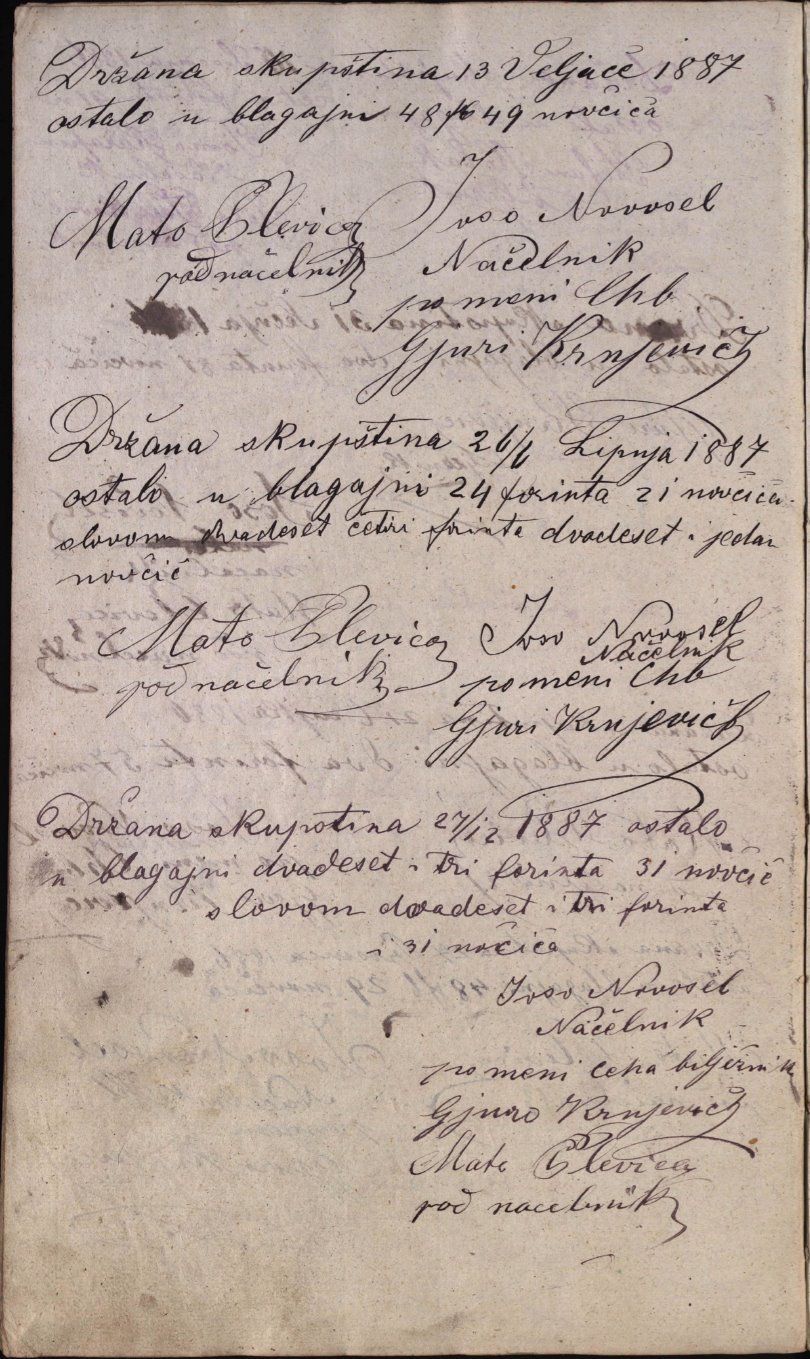 Držana skupština 13 Veljače 1887
ostalo u blagajni 48 f 49 novčića
Mato Plevica
podnačelnik
Joso Novosel
Načelnik
po meni Chb
Gjuri Krnjevič
Držana skupština 26/6 Lipnja 1887
ostalo u blagajni 24 forinta 21 novčića
slovom dvadeset četiri forinta dvadeset i jedan
novčić
Mato Plevica
podnačelnik
Joso Novosel
Načelnik
po meni Chb
Gjuri Krnjevič
Držana skupština 27/12 1887 ostalo
u blagajni dvadeset i tri forinta 31 novčić
slovom dvadeset i tri forinta
i 31 novčića
Joso Novosel
Načelnik
po meni ceha biljižnik
Gjuro Krnjevič
Mato Plevica
pod načelnik